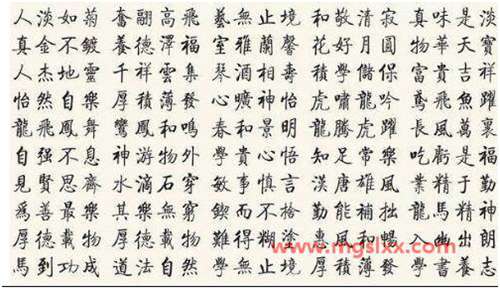 人淡如菊 奮翮高飛 藝無止境 和敬清寂 真味是淡
真金不鍍 養德澤福 室雅蘭馨 花好月圓 物華天寶
人杰地靈 千祥雲集 琴酒相壽 積學儲保 富貴吉祥
怡然自樂 厚積薄發 曠神怡 虎嘯龍吟 鳶飛魚躍
龍飛鳳舞 鸞鳳和鳴 春和景明 龍騰虎躍 長風萬裏
自强不息 神游物外 學貴心悟 知足常樂 吃虧是福
見賢思齊 水滴石穿 敏事慎言 漢唐雄風 業精于勤
爲善最樂 其樂無窮 鍥而不捨 勤能補拙 龍馬精神
厚德載物 難得糊塗 惠風和暢 入幽出朗
馬到功成 道法自然 學無止境 厚積薄發 學書養志
http://www.mgslxx.com